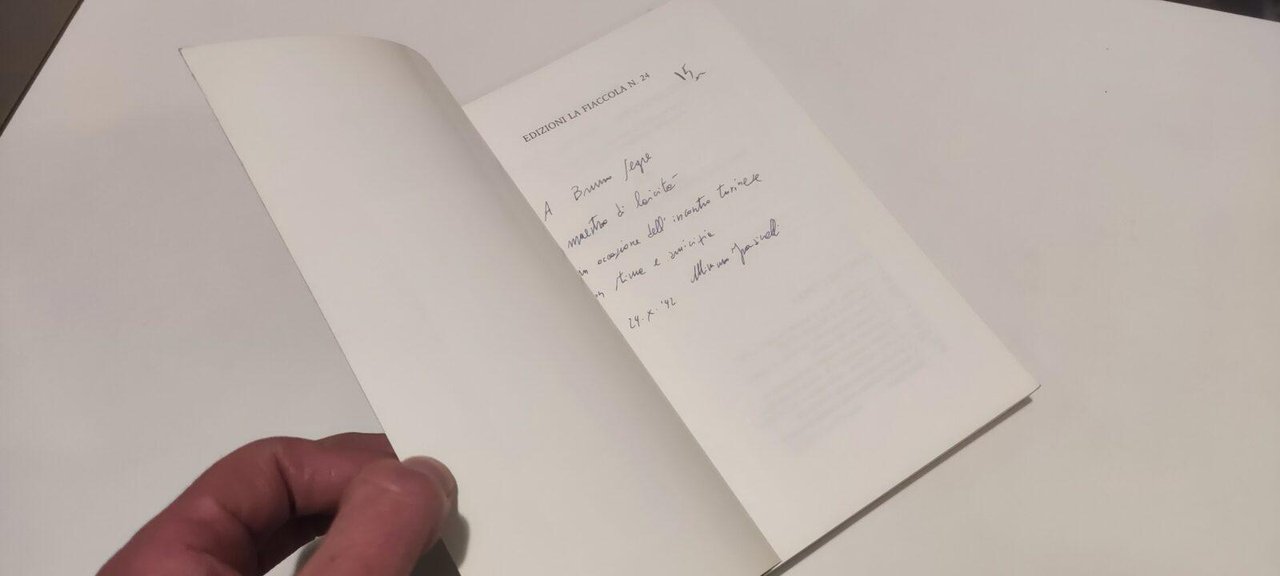 EDIZIONI LA FIACCOLA N. 24
15
A Bruno Segre
maestro di laicità
in occasione dell'incontro torinese
con stima e amicizia
24.X.'92